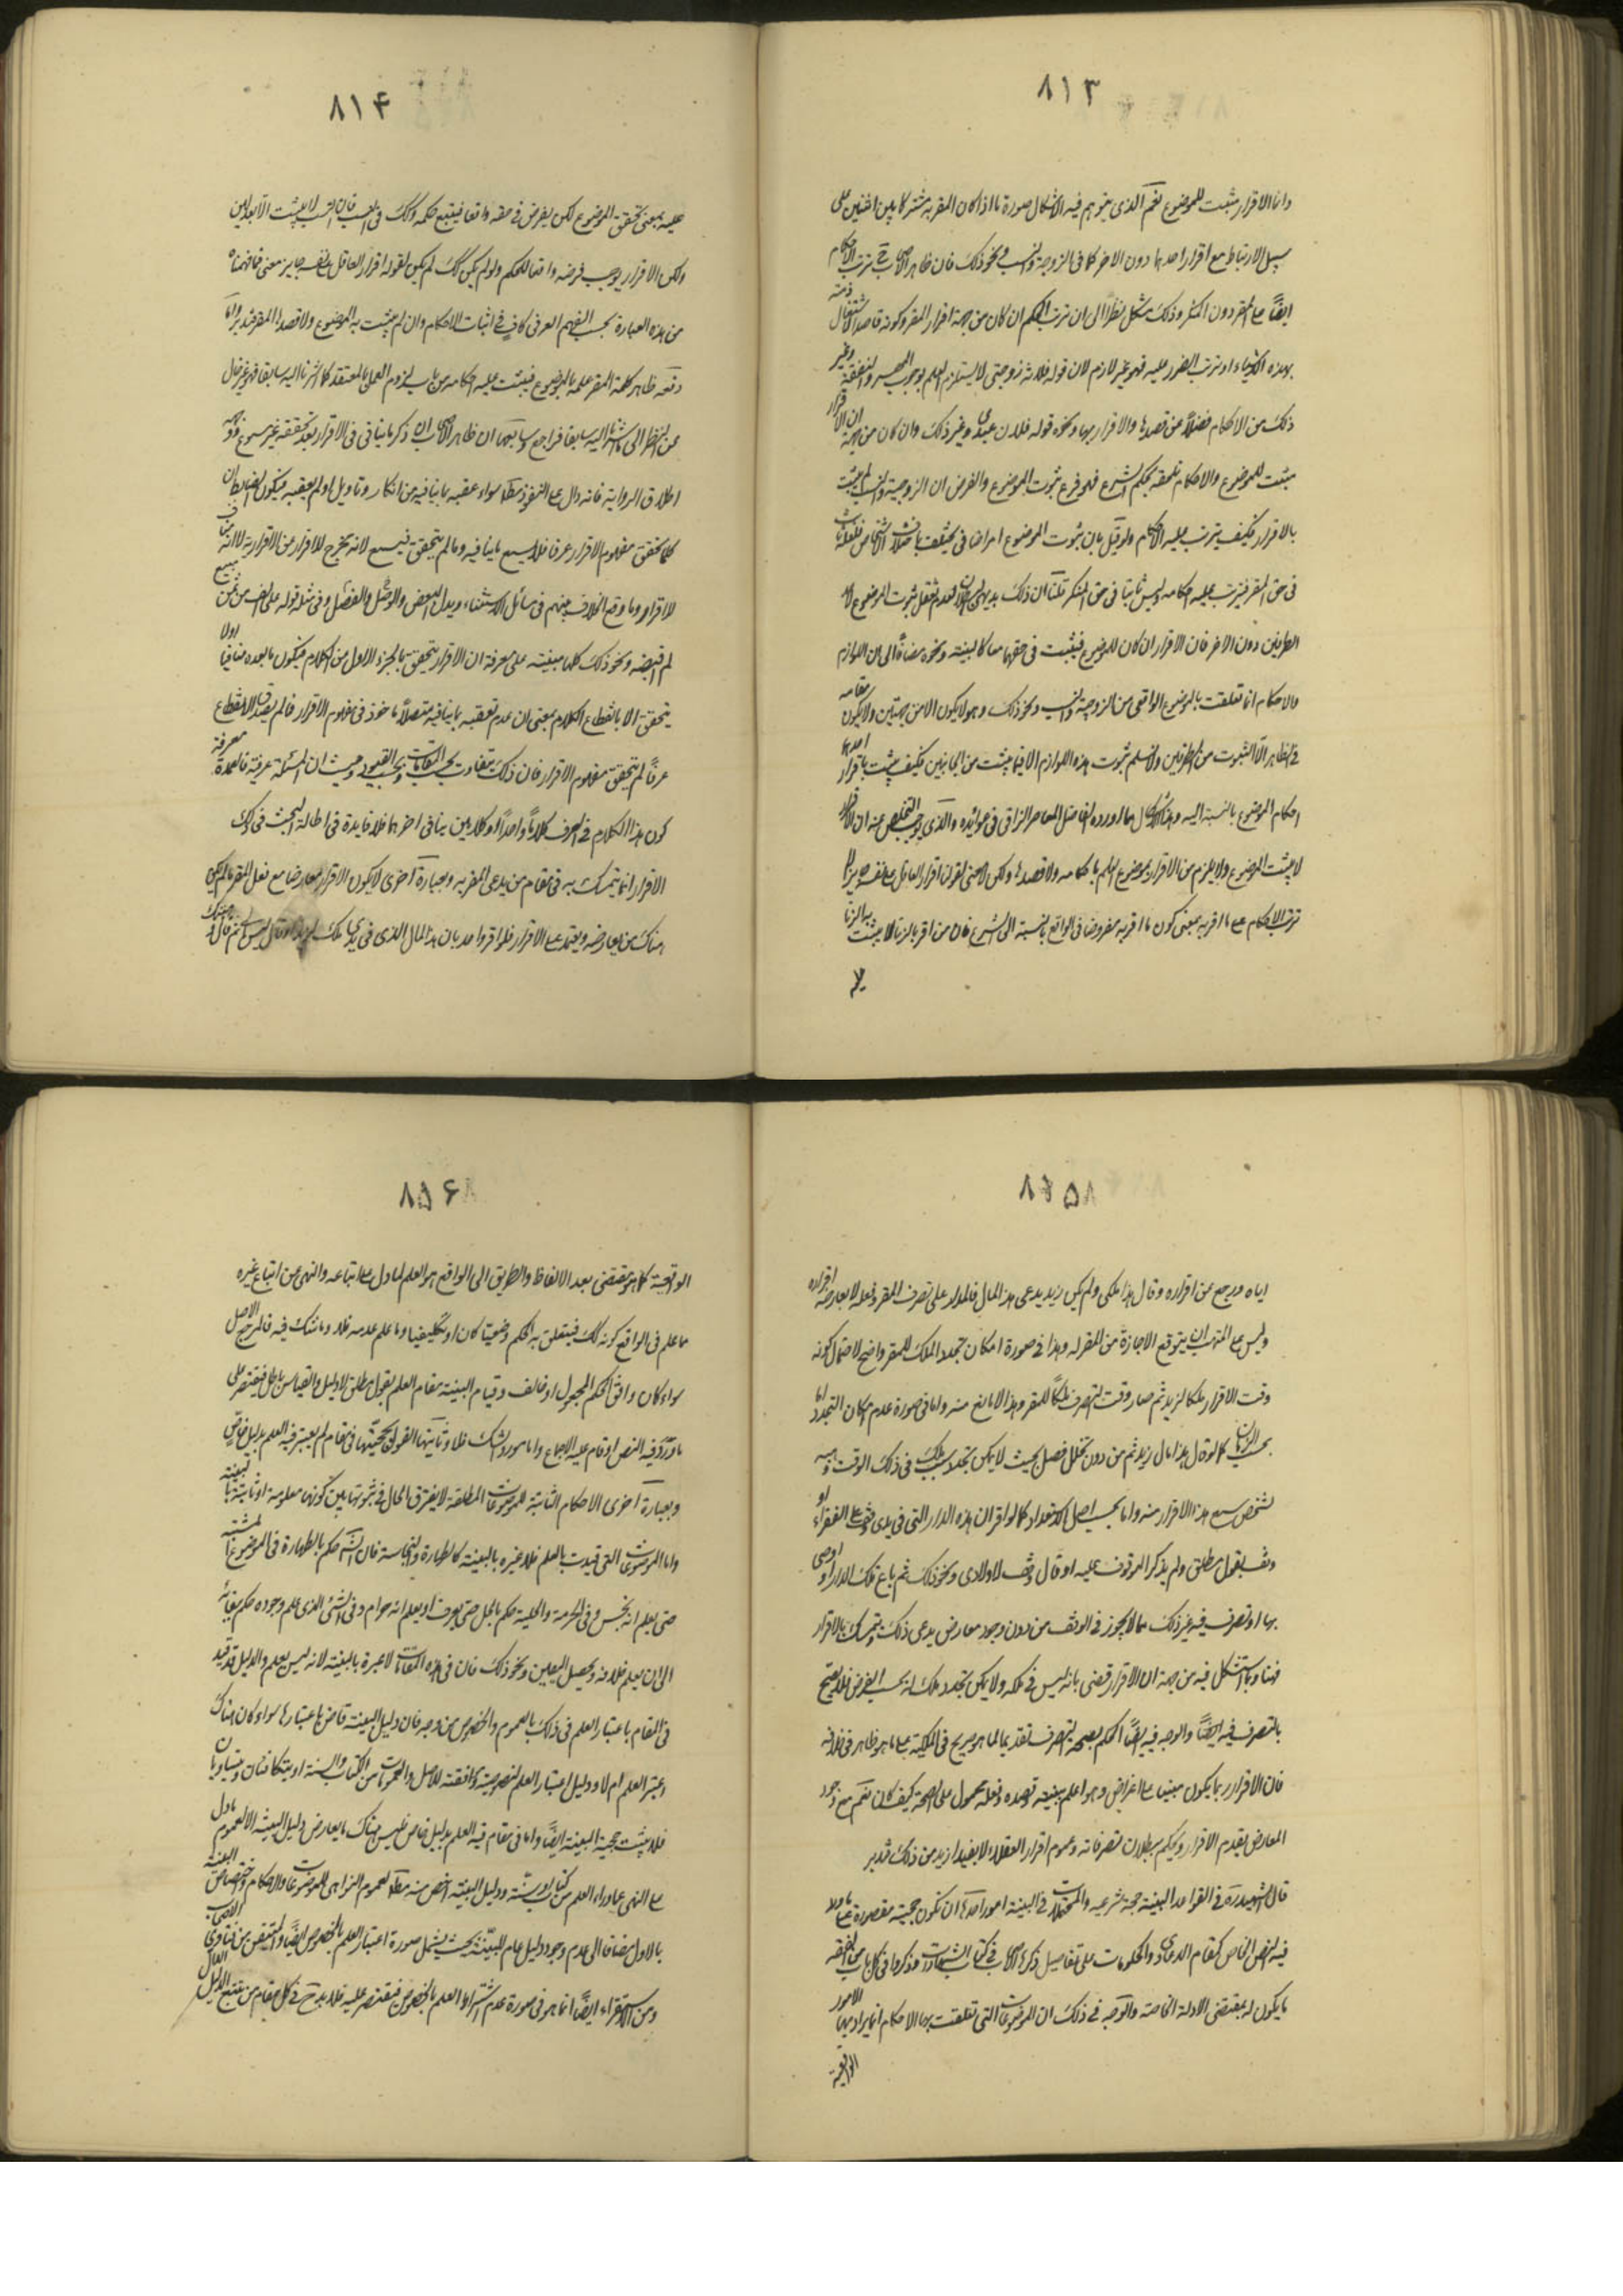 ٨١٣
واما الاقرار مثبت للموضوع نعم الذى يتوهم فيه الاشكال صورة ما اذا كان المقر به مشتركا بين اثنين على
سبيل الارتباط مع اقرار احدهما دون الاخر كما فى الزوجية والنسب ونحو ذلك فان ظاهر الاصحاب ترتب الاحكام
ايضًا على المقر دون المنكر وذلك مشكل نظرًا الى ان ترتب الحكم ان كان من جهة اقرار المقر وكونه قاصدا لاشتغال ذمته
بهذه الاشياء او ترتب الضرر عليه فهو غير لازم لان قوله فلانة زوجتى لا يستلزم العلم بوجوب المهر والنفقة وغير
ذلك من الاحكام فضلًا عن قصدها والاقرار بها ونحوه قوله فلان عبدى وغير ذلك وان كان من جهة ان الاقرار
مثبت للموضوع والاحكام تلحقه بحكم الشرع فهو فرع ثبوت الموضوع والفرض ان الزوجية والنسب لم يثبت
بالاقرار فكيف يترتب عليه الاحكام ولو قيل بان ثبوت الموضوع امر اضافى يختلف باختلاف الاشخاص
فى حق المقر فيترتب عليه احكامه وليس ثابتا فى حق المنكر قلنا ان ذلك بديهى البطلان لعدم تعقل ثبوت الموضوع لاحد
الطرفين دون الاخر فان الاقرار ان كان للموضوع فيثبت فى حقهما معا كالبينة ونحوه مضافًا الى ان اللوازم
والاحكام انما تعلقت بالموضوع الواقعى من الزوجية والنسب ونحو ذلك وهو لا يكون الا من جهتين ولا يكون مقامه
فى الظاهر الا الثبوت من الطرفين ولا نسلم ثبوت هذه اللوازم الا فيما يثبت من الجانبين فكيف يثبت باقرار احدهما
احكام الموضوع بالنسبة اليه وهذا الاشكال مما اورده الفاضل المعاصر النراقى فى عوائده والذى يوجب التخلص عنه ان الاقرار
لا يثبت الموضوع ولا يلزم من الاقرار بموضوع العلم باحكامه ولا قصدها ولكن لا معنى لقولنا اقرار العاقل على نفسه جايز الا
ترتب الاحكام على ما اقر به بمعنى كون ما اقر به مفروضا فى الواقع بالنسبة الى الشرع فان من اقر بالزنا لا يثبت به الزنا
٨١۴
عليه بمعنى تحقق الموضوع لكن يفرض فى حقه واقعا فيتبع حكمه وكذلك فى النسب فان النسب لا يثبت الا بعدلين
ولكن الاقرار يوجب فرضه واقعا للحكم ولو لم يكن كذلك لم يكن لقوله اقرار العاقل على نفسه جايز معنى فما فهمناه
من هذه العبارة بحسب الفهم العرفى كاف فى اثبات الاحكام وان لم يثبت به الموضوع ولا قصدها المقر فتدبر واما
دفعه ظاهر كلمة المقر علمه بالموضوع فيثبت عليه احكامه من باب لزوم العمل بالمعتقد كما اشرنا اليه سابقا فهو غير خال
عن النظر الى ما اشرنا اليه سابقا فراجع وسابعها ان ظاهر الاصحاب ان ذكر ما ينافى فى الاقرار بعد تحققه غير مسموع ووجهه
اطلاق الرواية فانه دال على النفوذ مطلقا سواء عقبه بما ينافيه من انكار وتاويل او لم يعقبه فيكون الضابط ان
كلما تحقق مفهوم الاقرار عرفا فلا يسمع ما ينافيه وما لم يتحقق فيسمع لانه مخرج للاقرار عن الاقرارية لا انه مناف
لاقراره وما وقع الخلاف بينهم فى مسائل الاستثناء وبدل البعض والوصل والفصل وفى مثل قوله على الف من ثمن مبيع
لم اقبضه ونحو ذلك كلها مبنية على معرفة ان الاقرار يتحقق بالجزء الاول من الكلام فيكون ما بعده منافيا او لا
يتحقق الا بانقطاع الكلام بمعنى ان عدم تعقبه بما ينافيه متصلًا ماخوذ فى مفهوم الاقرار فما لم يصدق الانقطاع
عرفًا لم يتحقق مفهوم الاقرار فان ذلك متفاوت بحسب المقامات وبحسب القيود وحيث ان المسئلة عرفية فالعمدة معرفة
كون هذا الكلام فى العرف كلامًا واحدًا او كلامين ينافى اخرهما فلا فايدة فى اطالة البحث فى ذلك
الاقرار انما يتمسك به فى مقام من يدعى المقر به وبعبارة اخرى لا يكون الاقرار معارضا مع فعل المقر ما لم يكن
هناك من يعارضه ويعتمد على الاقرار فلو اقر واحد بان هذا المال الذى فى يدى ملك لزيد
٨١۵
اياه ورجع عن اقراره وقال هذا ملكى ولم يكن زيد يدعى هذا المال فالمدار على تصرف المقر وفعله لا يعارضه اقراره
وليس على المتهب ان يتوقع الاجازة من المقر له وهذا فى صورة امكان تجدد الملك للمقر واضح لاحتمال كونه
وقت الاقرار ملكا لزيد ثم صار وقت التصرف ملكًا للمقر وهذا لا مانع منه واما فى صورة عدم امكان التجدد اما
بحسب الزمان كما لو قال هذا مال زيد ثم من دون تخلل فصل بحيث لا يمكن تجدد سبب ملك فى ذلك الوقت وهبه
لشخص سمع هذا الاقرار منه واما بحسب اصل الاستعداد كما لو اقر ان هذه الدار التى فى يدى وقف على الفقراء او
وقف بقول مطلق ولم يذكر الموقوف عليه او قال وقف لاولادى ونحو ذلك ثم باع تلك الدار او اوصى
بها او تصرف فيه غير ذلك مما لا يجوز فى الوقف من دون وجود معارض يدعى ذلك ويتمسك بالاقرار
فهنا ربما استشكل فيه من جهة ان الاقرار قضى بانه ليس فى ملكه ولا يمكن تجدد ملك له بحسب الفرض فلا يصح
بالتصرف فيه ايضًا والوجه فيه ايضًا الحكم بصحة التصرف تقديما لما هو صريح فى الملكية على ما هو ظاهر فى خلافه
فان الاقرار ربما يكون مبنيا على اغراض وهو اعلم بنيته وقصده وفعله محمول على الصحة كيف كان نعم مع وجود
المعارض يقدم الاقرار ويحكم ببطلان تصرفاته وعموم اقرار العقلاء لا يفيد ازيد من ذلك فتدبر
قال الشهيد ره فى القواعد البينة حجة شرعية والمحتملات فى البينة امور احدها ان تكون حجية مقصورة على ما ورد
فيه النص الخاص كمقام الدعاوى والحكومات على تفاصيل ذكرها الاصحاب فى كتاب الشهادات وذكروا فى كل باب من الفقه
ما يكون له بمقتضى الادلة الخاصة والوجه فى ذلك ان الموضوعات التى تعلقت بها الاحكام انما يراد بها الامور
الواقعية
٨١۶
الواقعية كما هو مقتضى بعد الالفاظ والطريق الى الواقع هو العلم لما دل على اتباعه والنهى عن اتباع غيره
ما علم فى الواقع كونه كذلك فيتعلق به الحكم وضعيا كان او تكليفيا وما علم عدمه فلا وما شك فيه فالمرجع الاصل
سواء كان وافق الحكم المجهول او خالف وقيام البينة مقام العلم بقول مطلق لا دليل والقياس باطل فيقتصر على
ما ورد فيه النص او قام عليه الاجماع واما موارد الشك فلا وثانيها القول بحجيتها فى مقام لم يعتبر فيه العلم بدليل خاص
وبعبارة اخرى الاحكام الثابتة للموضوعات المطلقة لا يفترق الحال فى ثبوتها بين كونها معلومة او ثابتة بالبينة
واما الموضوعات التى قيدت بالعلم فلا عبرة بالبينة كالطهارة والنجاسة فان الشارع حكم بالطهارة فى الموضوع المشتبه
حتى يعلم انه نجس وفى الحرمة والحلية حكم بالحل حتى يعرف او يعلم انه حرام وفى الشئ الذى علم وجوده حكم ببقائه
الى ان يعلم خلافه ويحصل اليقين ونحو ذلك فان فى هذه المقامات لا عبرة بالبينة لانه ليس بعلم والدليل قد قيد
فى المقام باعتبار العلم فى ذلك بالعموم والخصوص من وجه فان دليل البينة قاض باعتبارها سواء كان هناك
اعتبر العلم ام لا ودليل اعتبار العلم لنصوصيته وموافقته للاصل والعمومات من الكتاب والسنة او يتكافئان ويتساويان
فلا يثبت حجية البينة ايضًا واما فى مقام قيد العلم بدليل خاص فليس هناك ما يعارض دليل البينة الا العموم مادل
على النهى عما وراء العلم من كتاب او سنة ودليل البينة اخص منه مطلقا لعموم النواهى للموضوعات والاحكام واختصاص البينة
بالاول مضافا الى عدم وجود دليل عام للبينة بحيث يشمل صورة اعتبار العلم بالخصوص ايضًا والمتيقن من فتاوى الاصحاب
ومن الاستقراء ايضًا انما هو فى صورة عدم اشتراط العلم بالخصوص فيقتصر عليه فلا بد فى كل مقام من تتبع الدليل الدال